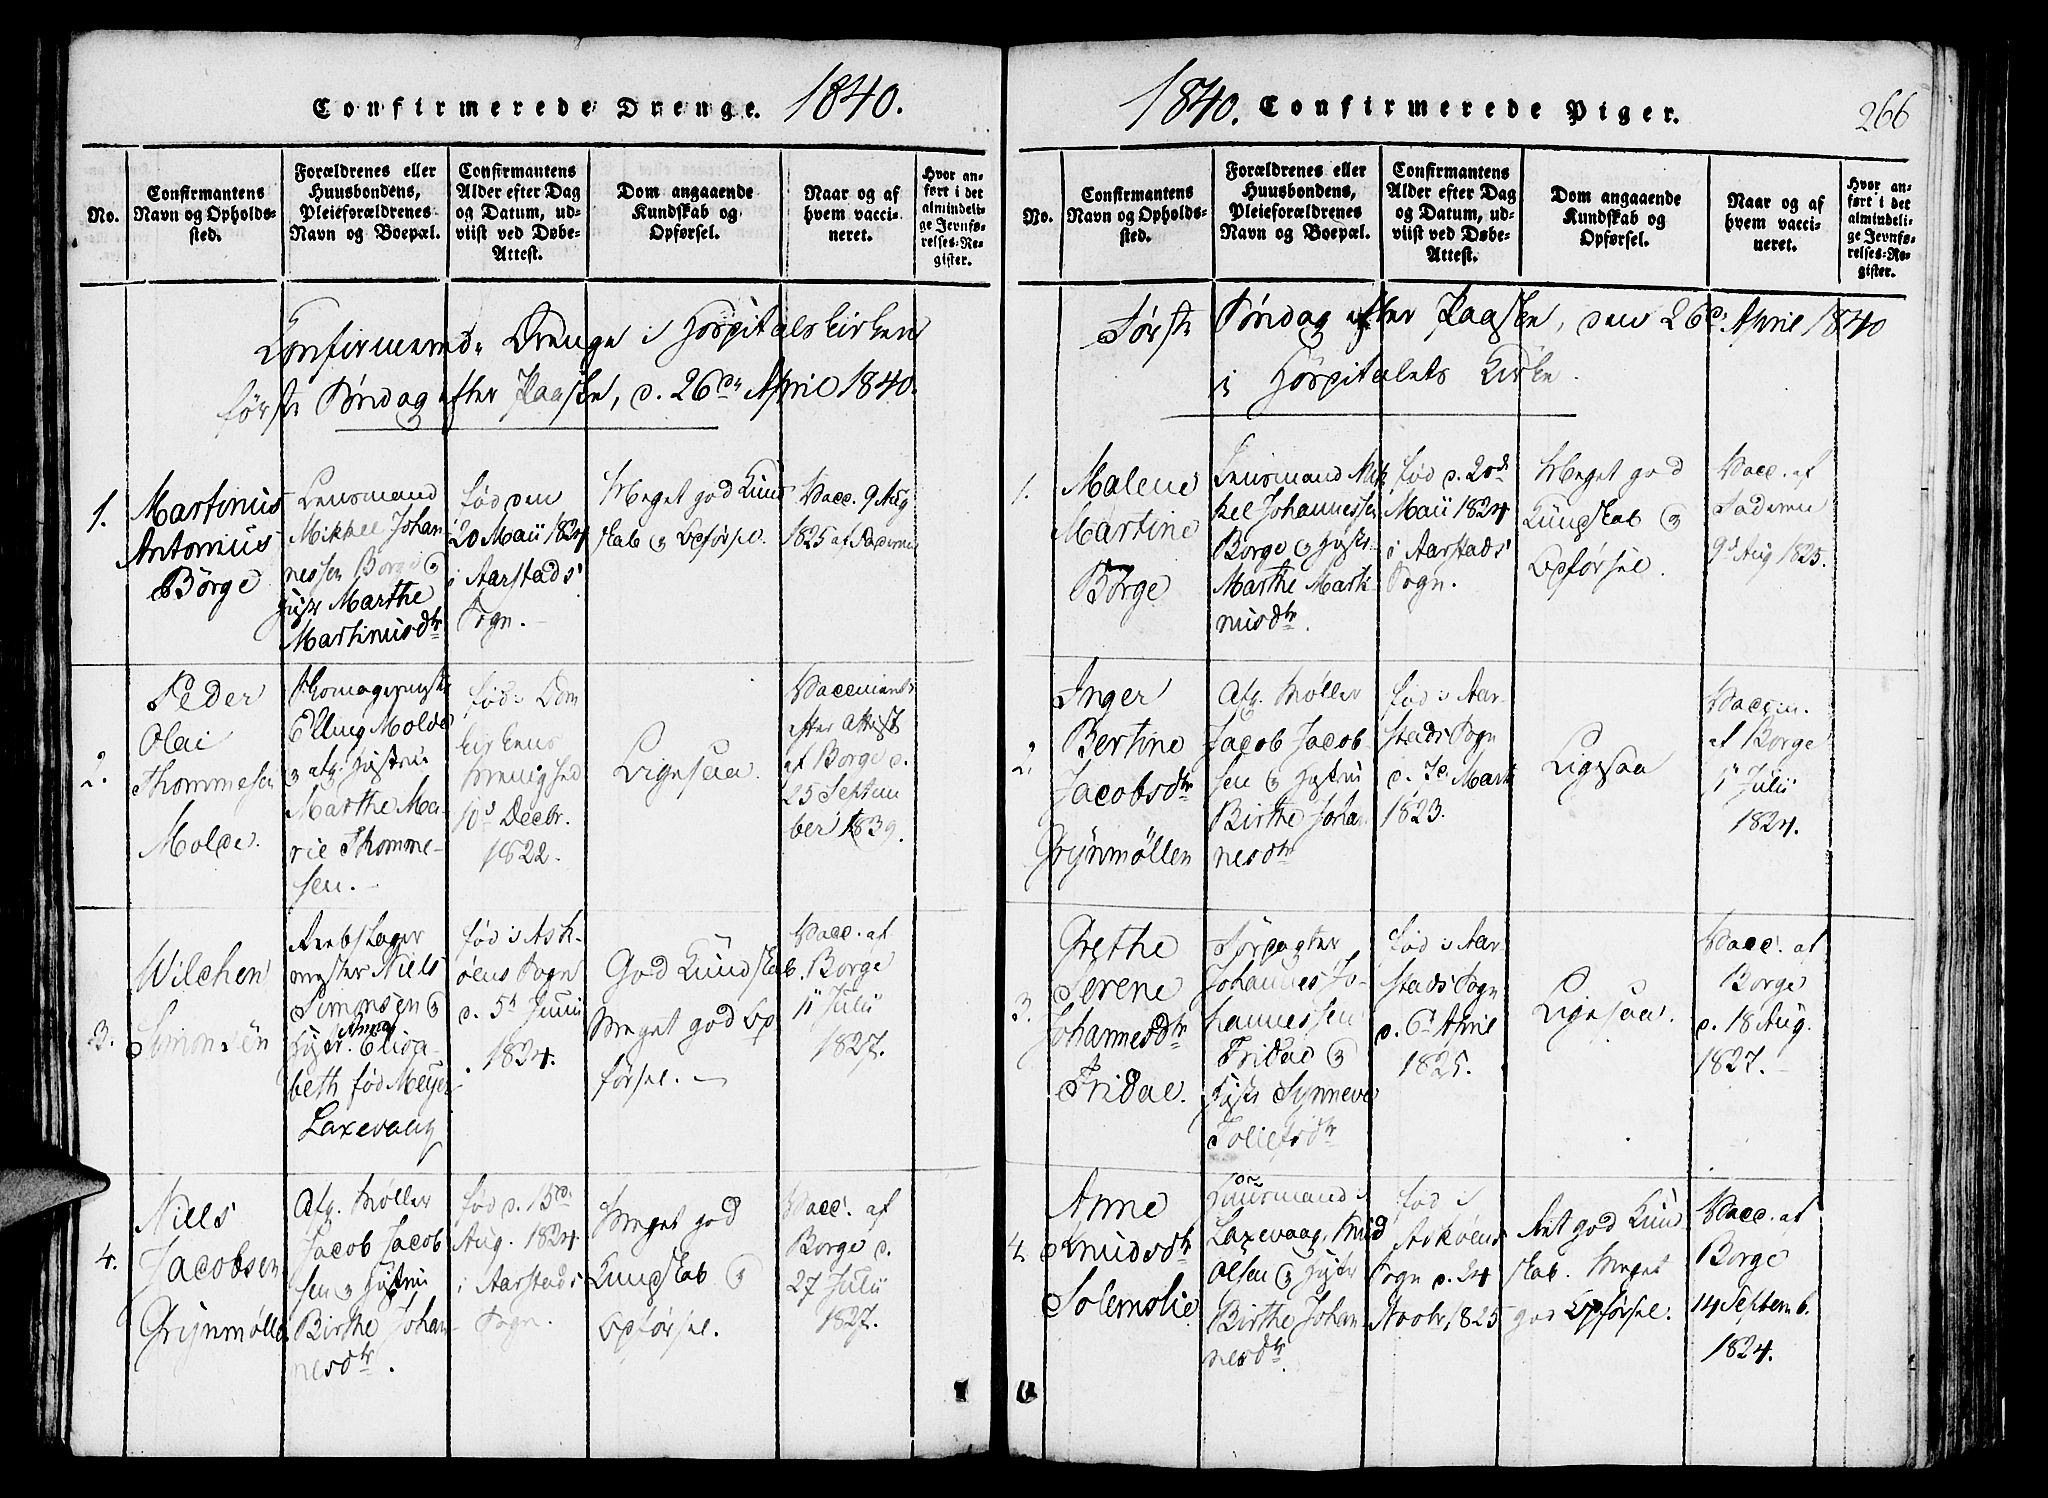 Confirmerede Drenge. 1840.
No.
Confirmantens
Navn og Opholds-
sted.
Forældrenes eller
Huusbondens,
Pleieforældrenes
Navn og Boepæl.
Confirmantens
Alder efter Dag
og Datum, ud-
viist ved Døbe-
Attest.
Dom angaaende
Kundskab og
Opførsel.
Naar og af
hvem vacci-
neret.
Hvor an-
ført i det
almindeli-
ge Jevnfø-
relses-Re-
gister.
Confirmerede Drenge i Hospitalskirken
første Søndag efter Paaske, d. 26de April 1840.
1.
Martinus
Antonius
Börge
Lensmand
Mikkel Johan
nessen Borge og
Hustr Marthe
Martinusdtr
Fød den
20 Maii 1824
i Aarstads
Sogn.
Meget god Kund
skab og Opførsel.
Vacc. 9 Aug
1825 af Faderen
2.
Peder
Olai
Thommesen
Molde.
Elling Molde
og afg. Hustrue
Marthe Ma-
rie Thomme-
sen.
Fød i Dom
kirkens
Menighed
10d Decbr.
1822.
Ligesaa.
Vaccineret
efter Attest
af Borge d.
25 Septem
ber 1839.
3.
Wilchen
Simonsen
Niels
Simonsen og
Hustr. Anna Elisa-
beth fød Meyer
Laxevaag
fød i Ask-
öens Sogn
d. 5d Junii
1824.
God Kundskab.
Meget god Op
førsel.
Vacc. af
Borge
11 Julii
1827.
4.
Niels
Jacobsen
Grÿnmøllen
Afg. Møller
Jacob Jacob
sen og Hustru
Birthe Johan
nesdtr.
Fød d. 15de
Aug. 1824
i Aarstads
Sogn.
Meget god
Kundskab og
Opførsel.
Vacc. af
Borge d.
27 Julii
1827.
1840. Confirmerede Piger.
266
No.
Confirmantens
Navn og Opholds-
sted.
Forældrenes eller
Huusbondens,
Pleieforældrenes
Navn og Boepæl.
Confirmantens
Alder efter Dag
og Datum, ud-
viist ved Døbe-
Attest.
Dom angaaende
Kundskab og
Opførsel.
Naar og af
hvem vacci-
neret.
Hvor an-
ført i det
almindeli-
ge Jevnfø-
relses-Re-
gister.
Første Søndag efter Paaske, den 26de April 1840
i Hospitalets Kirke.
1.
Malene
Martine
Börge
Lensmand Mik
kel Johannessen
Borge og Hustr
Marthe Marti-
nusdtr.
Fød d. 20de
Maii 1824
i Aarstads
Sogn.
Meget god
Kundskab og
Opførsel.
Vacc. af
Faderen
9d Aug 1825.
2.
Inger
Bertine
Jacobsdtr
Grÿnmöllen
Afg. Møller
Jacob Jacob
sen og Hustru
Birthe Johan
nesdtr
Fød i Aar-
stads Sogn
Marts
1823.
Ligesaa
Vaccin.
af Borge
Julii
1824.
3.
Grethe
Serene
Johannesdtr
Fridal.
Forpagter
Johannes Jo-
hannessen
Fridal og
Hustr Synneve
Tollefsdtr
Fød i Aar
stads Sogn
d. 6d April
1825.
Ligesaa.
Vacc. af
Borge
d. 18 Aug.
1827.
4.
Anne
Knudsdtr
Solemslie
Huusmand i
Laxevaag, Knud
Olsen og Hustr
Birthe Johan-
nesdtr.
Fød i
Askøens
Sogn d. 24
Novbr. 1825
god Kund
skab. Meget
god Opførsel.
Vacc. af
Borge
14 Septemb.
1824.